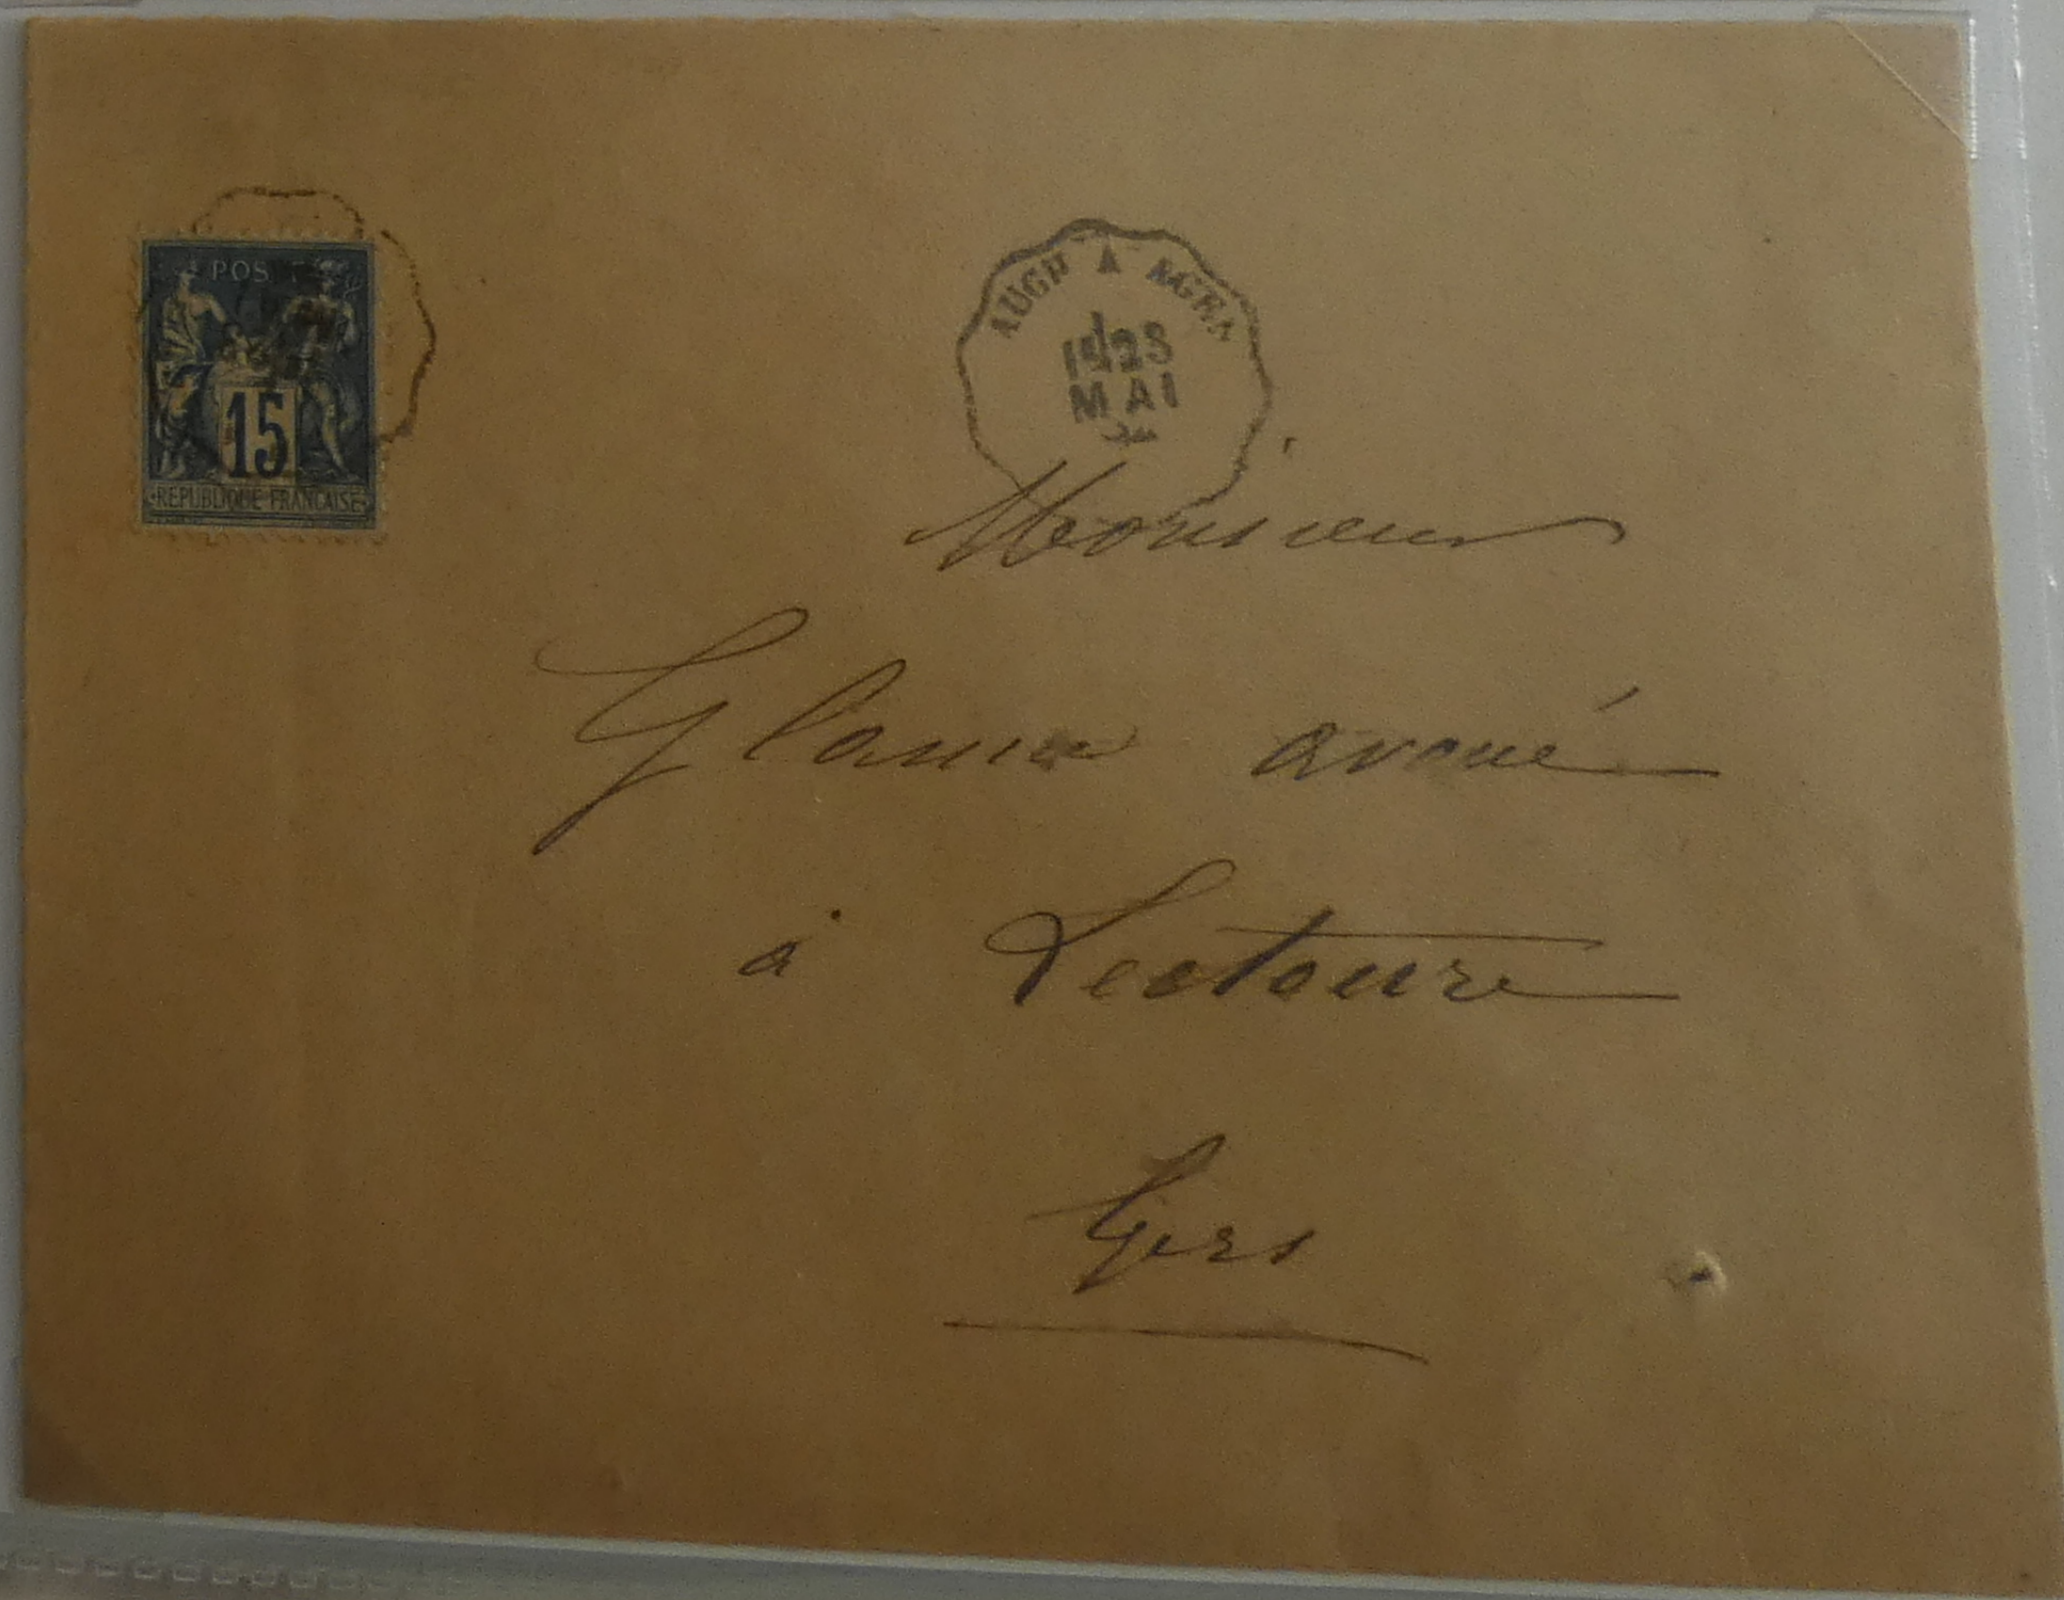 POSTE
15
REPUBLIQUE FRANCAISE
AUCH A AGEN
MAI
Monsieur
avoué
à Lectoure
Gers